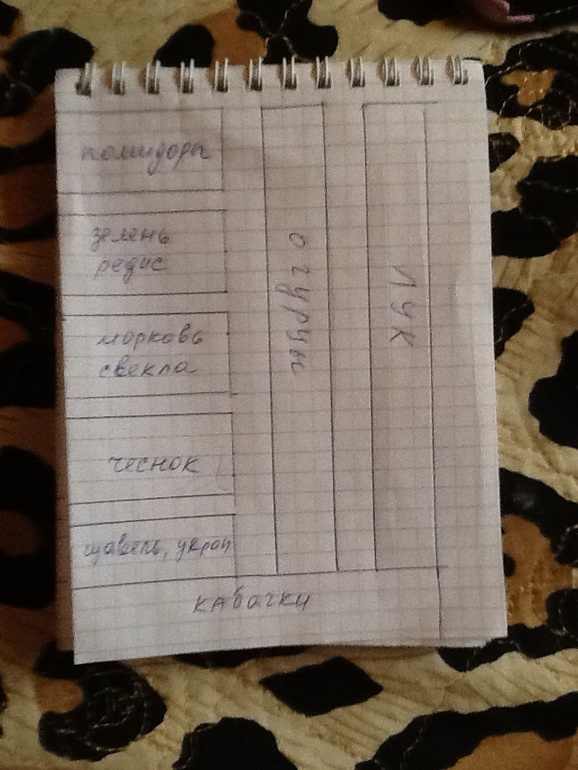 помидоры
зелень
редис
морковь
свекла
чеснок
щавель, укроп
огурцы
лук
кабачки